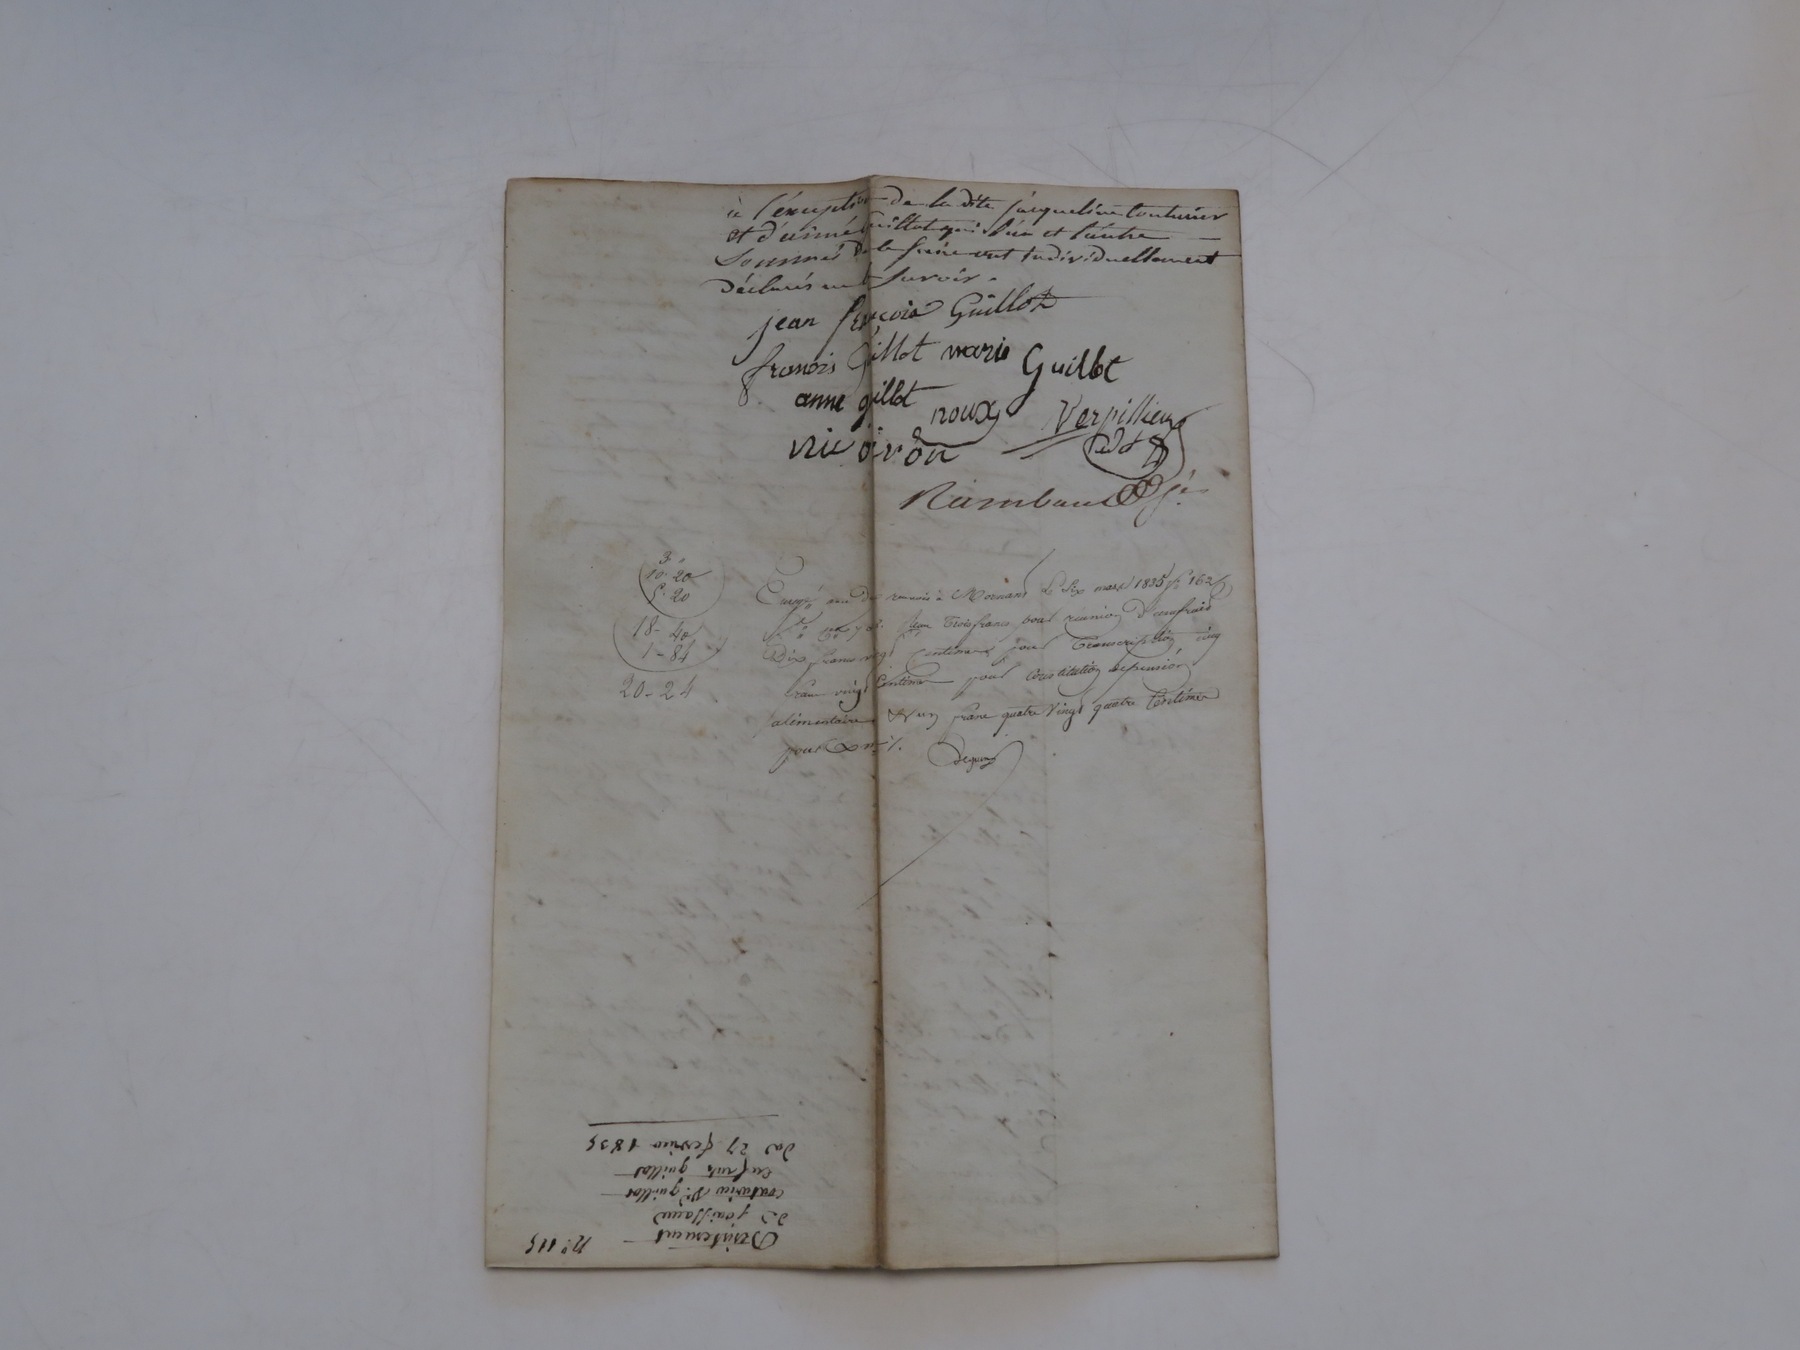 à l'éxception de la dite jacqueline Couturier
et d'aimé Guillot qui l'un et l'autre
Sommés de le faire ont individuellement
déclarés ne Savoir.
jean françois Guillot
francois Gillot marie Guillot
anne gillot roux Verpillieux
Rambaud
3. "
10. 20
5. 20
18 - 40
1 - 84
20 - 24
Enregé renvois à Mornant le Six mars 1835 fo 162
Trois francs pour réunion d'usufruit
Dix francs vingt Centimes pour Transcription cinq
francs vingt Centimes pour Constitution de pension
alimentaire & un franc quatre vingt quatre Centimes
pour
No 115
Désistement
de jouissance
couturier Ve guillot
enfants guillot
du 27 février 1835